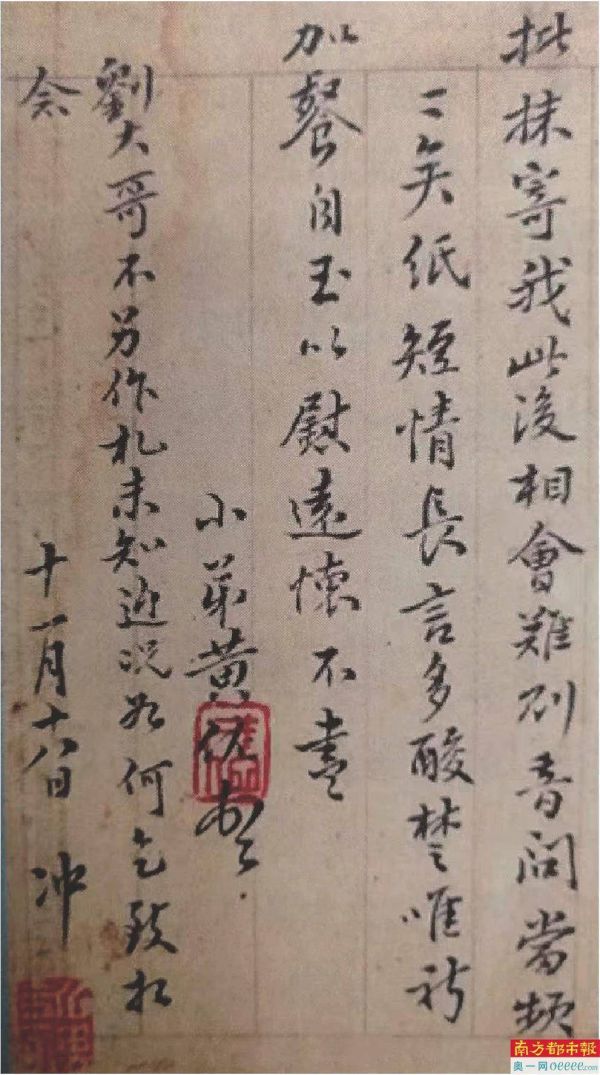 批抹寄我此後相會難則音問當頻
〻矣紙短情長言多酸楚唯祈
加餐自玉以慰遠懷不盡
小弟黃
劉大哥不另作札未知近況如何乞致相
念 十一月十八日 冲
南方都市報
奥一网oeeee.com